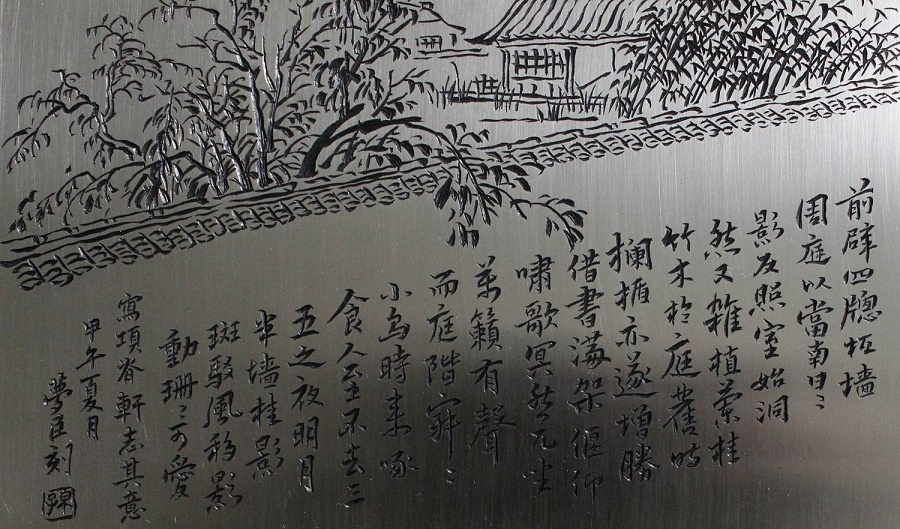 前辟四牕垣墙
周庭以當南日日
影反照室始洞
然又雜植蘭桂
竹木於庭舊時
欄楯亦遂增勝
借書滿架偃仰
嘯歌冥然兀坐
萬籟有聲
而庭階寂〻
小鳥時來啄
食人至不去三
五之夜明月
半墙桂影
斑駁風移影
動珊〻可愛
寫項脊軒志其意
甲午夏月
夢臣刻